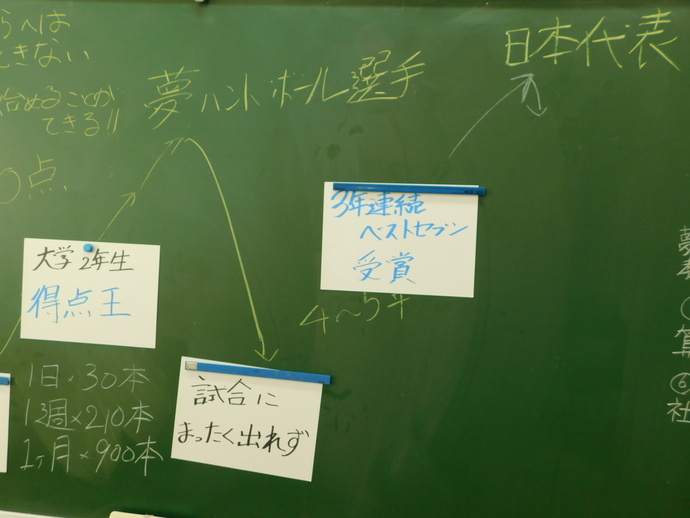 らへは
できない
始めることが
できる!!
夢 ハンドボール選手
日本代表
0点
3年連続
ベストセブン
受賞
大学2年生
得点王
4〜5年
試合に
まったく出れず
1日×30本
1週×210本
1ヶ月×900本
夢
算
⑥
社